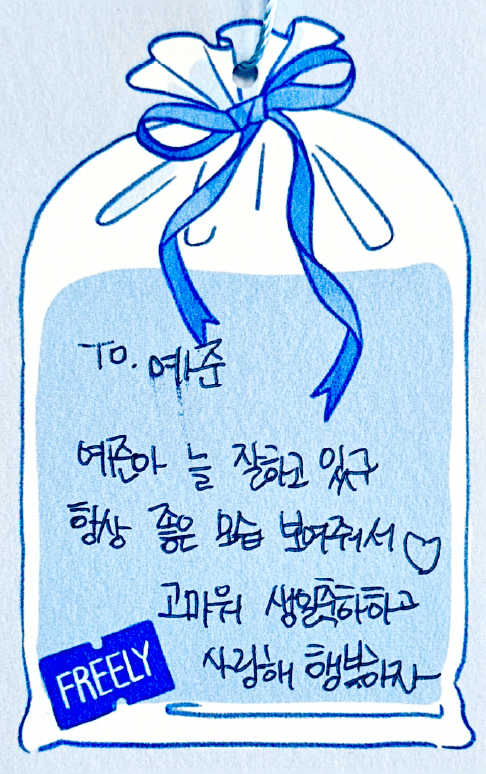 To. 예준
예준아 늘 잘하고 있구
항상 좋은 모습 보여줘서♡
고마워 생일축하하고
사랑해 행복하자
FREELY